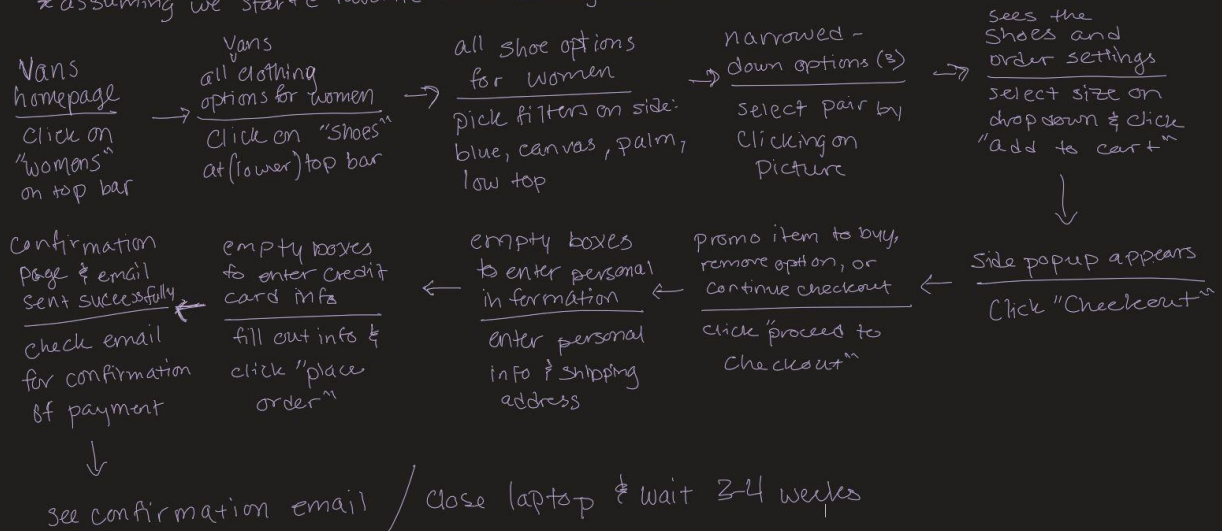 * assuming we start
Vans
homepage
Click on
"womens"
on top bar
Vans
all clothing
options for women
Click on "Shoes"
at (lower) top bar
all shoe options
for women
pick filters on side:
blue, canvas, palm,
low top
narrowed-
down options (3)
select pair by
clicking on
picture
sees the
shoes and
order settings
select size on
dropdown & click
"add to cart"
side popup appears
Click "Checkout"
promo item to buy,
remove option, or
continue checkout
click "proceed to
checkout"
empty boxes
to enter personal
information
enter personal
info & shipping
address
empty boxes
to enter credit
card info
fill out info &
click "place
order"
confirmation
page & email
sent successfully
check email
for confirmation
of payment
see confirmation email / close laptop & wait 3-4 weeks